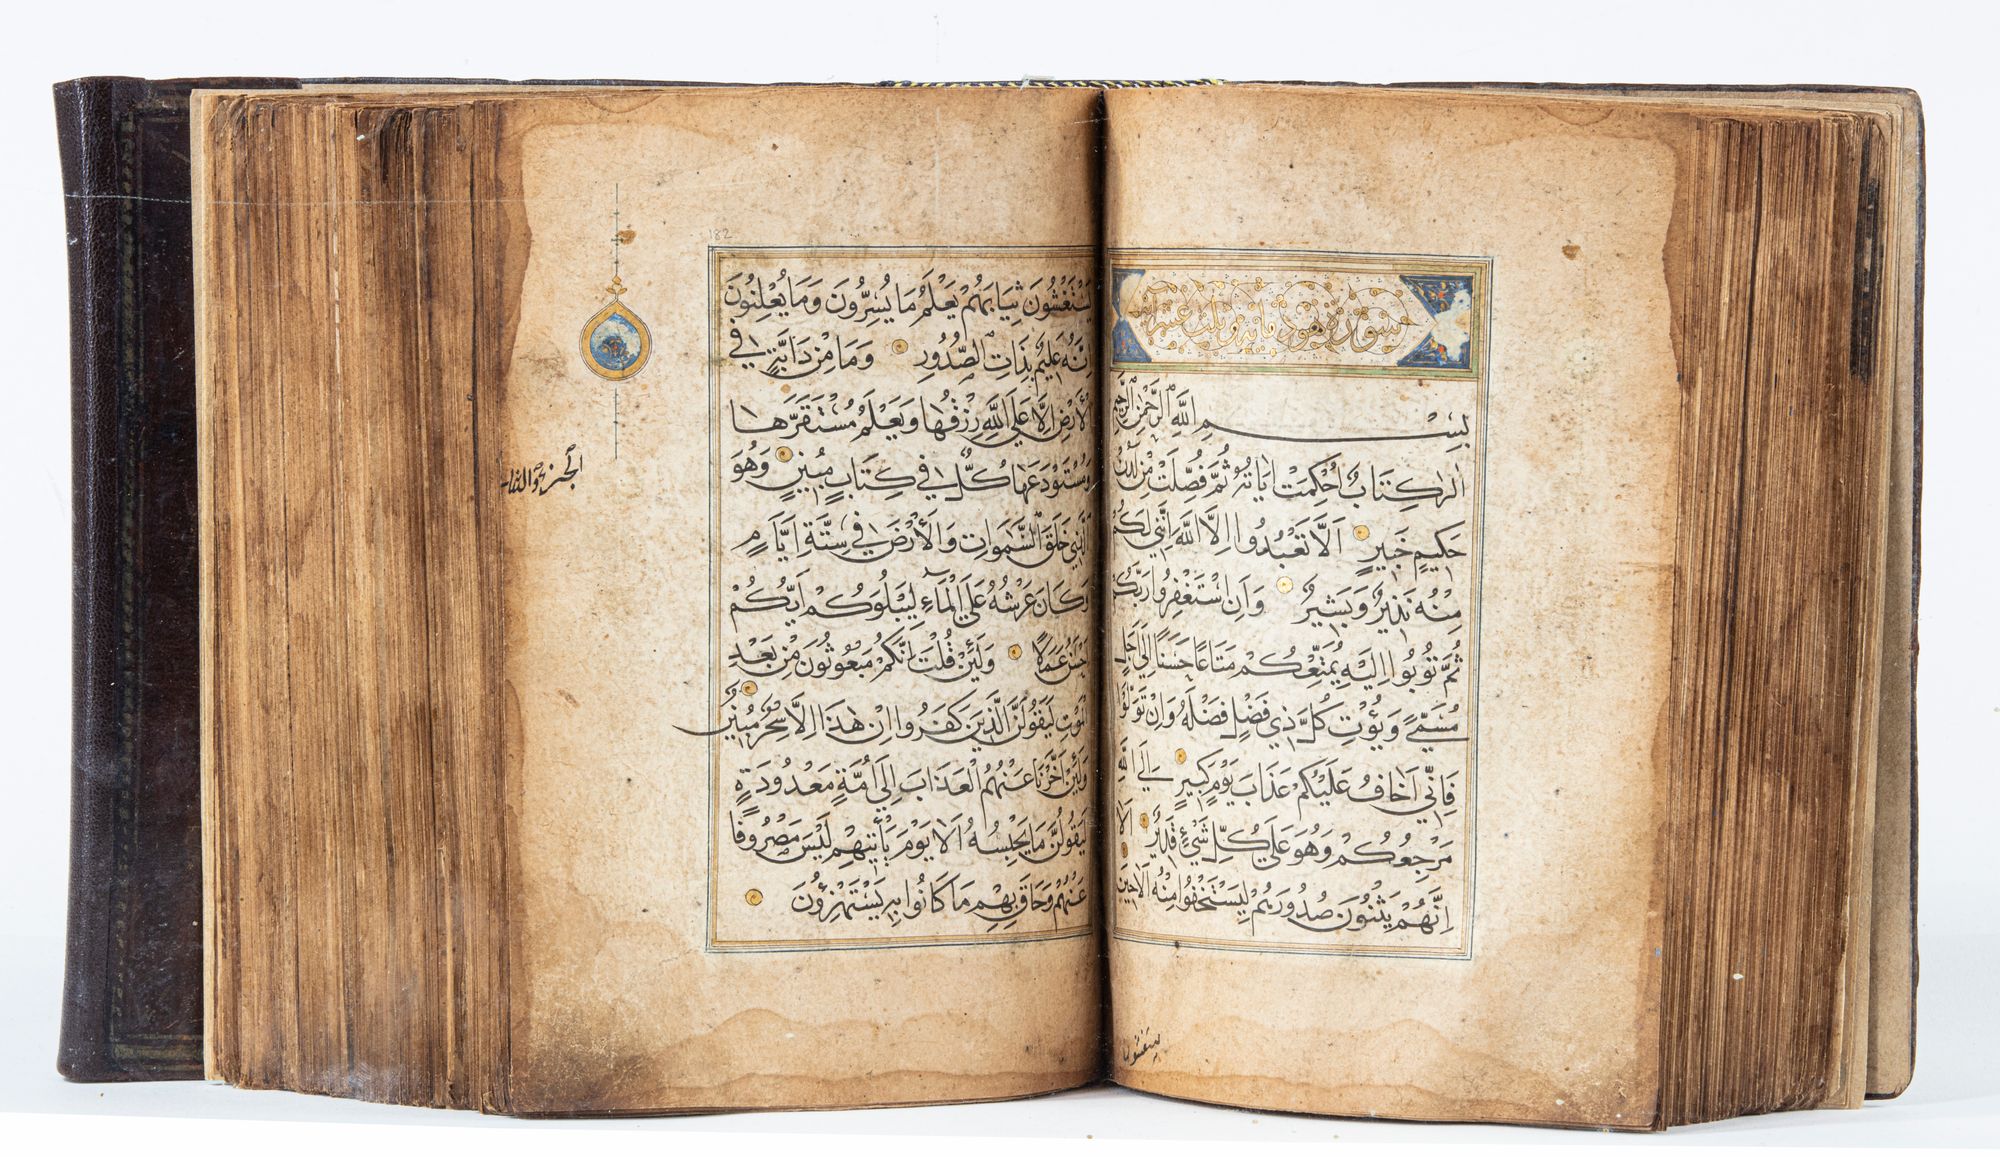 سورة هود مائة وثلث عشر آية
بسم الله الرحمن الرحيم
الر كتاب أحكمت آياته ثم فصلت من لدن
حكيم خبير ألا تعبدوا إلا الله إنني لكم
منه نذير وبشير وأن استغفروا ربكم
ثم توبوا إليه يمتعكم متاعا حسنا إلى أجل
مسمى ويؤت كل ذي فضل فضله وإن تولوا
فإني أخاف عليكم عذاب يوم كبير إلى الله
مرجعكم وهو على كل شيء قدير ألا
إنهم يثنون صدورهم ليستخفوا منه ألا حين
يستغشون
182
يستغشون ثيابهم يعلم ما يسرون وما يعلنون
إنه عليم بذات الصدور وما من دابة في
الأرض إلا على الله رزقها ويعلم مستقرها
ومستودعها كل في كتاب مبين وهو
الذي خلق السموات والأرض في ستة أيام
وكان عرشه على الماء ليبلوكم أيكم
أحسن عملا ولئن قلت إنكم مبعوثون من بعد
الموت ليقولن الذين كفروا إن هذا إلا سحر مبين
ولئن أخرنا عنهم العذاب إلى أمة معدودة
ليقولن ما يحبسه ألا يوم يأتيهم ليس مصروفا
عنهم وحاق بهم ما كانوا به يستهزؤن
الجزء